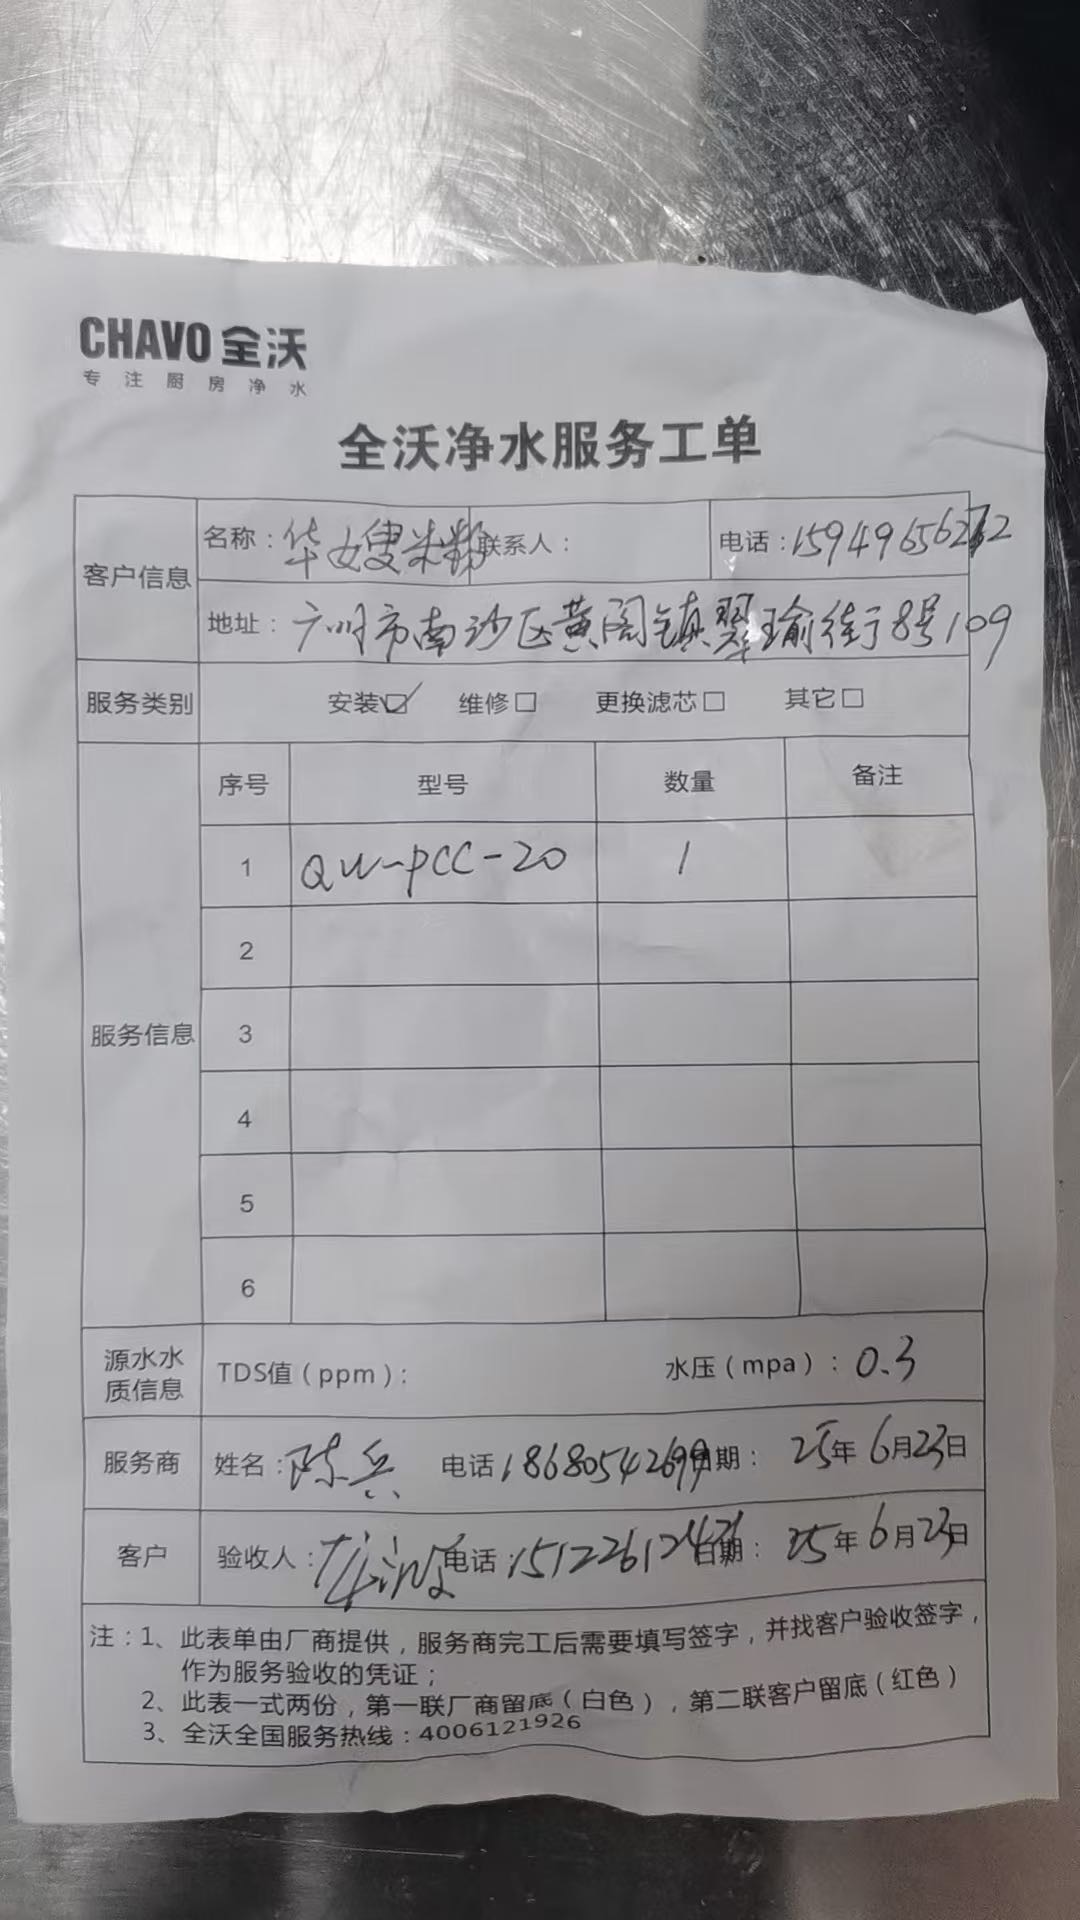 CHAVO 全沃
专注厨房净水
全沃净水服务工单
客户信息
名称：华女嫂米粉 联系人： 电话：159496562
地址：广州市南沙区黄阁镇翠瑜街8号109
服务类别 安装☑ 维修□ 更换滤芯□ 其它□
服务信息
序号 型号 数量 备注
1 QW-PCC-20 1
2
3
4
5
6
源水水质信息 TDS值（ppm）： 水压（mpa）：0.3
服务商 姓名：陈兵 电话18680542699 日期： 25年6月23日
客户 验收人： 电话：15122612 日期： 25年6月23日
注：1、此表单由厂商提供，服务商完工后需要填写签字，并找客户验收签字，
作为服务验收的凭证；
2、此表一式两份，第一联厂商留底（白色），第二联客户留底（红色）
3、全沃全国服务热线：4006121926